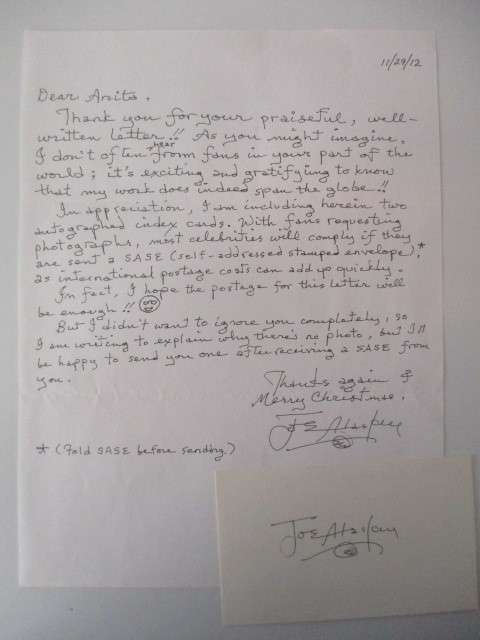 11/29/12
Dear Arvits.
Thank you for your praiseful, well-
written letter!! As you might imagine,
I don't often hear from fans in your part of the
world; it's exciting and gratifying to know
that my work does indeed span the globe!!
In appreciation, I am including herein two
autographed index cards. With fans requesting
photographs, most celebrities will comply if they
are sent a SASE (self-addressed stamped envelope)*,
as international postage costs can add up quickly.
In fact, I hope the postage for this letter will
be enough!!
But I didn't want to ignore you completely, so
I am writing to explain why there's no photo, but I'll
be happy to send you one after receiving a SASE from
you.
Thanks again &
Merry Christmas.
Joe Alaskey
* (Fold SASE before sending.)
Joe Alaskey